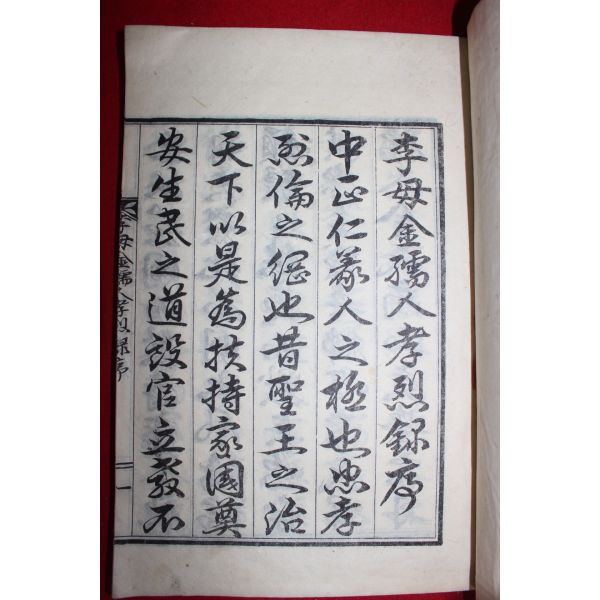 李母金孺人孝烈錄序
中正仁義人之極也忠孝
烈倫之綱也昔聖王之治
天下以是爲扶持家國奠
安生民之道設官立敎不
李母金孺人孝烈錄序
一